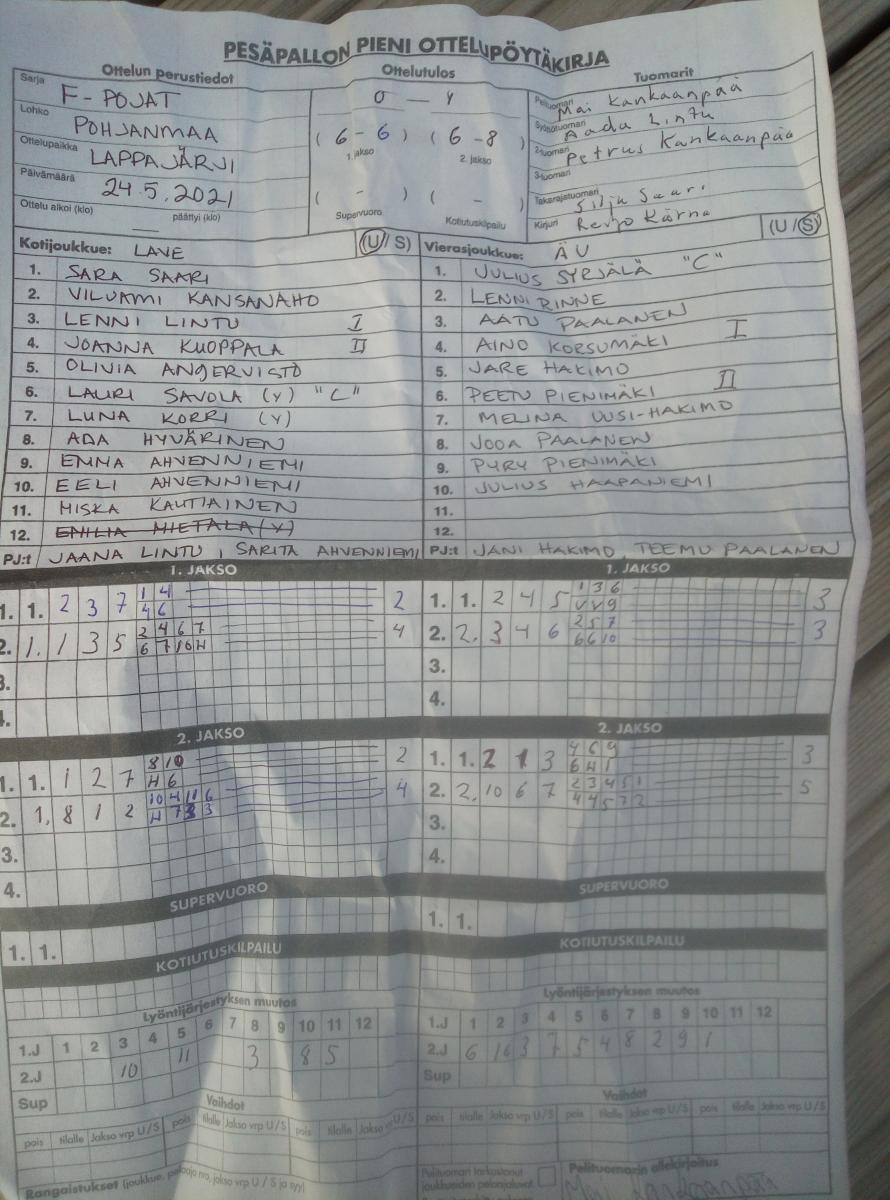 PESÄPALLON PIENI OTTELUPÖYTÄKIRJA
Ottelun perustiedot
Sarja F-POJAT
Lohko POHJANMAA
Ottelupaikka LAPPAJÄRVI
Päivämäärä 24.5.2021
Ottelu alkoi (klo) päättyi (klo)
Ottelutulos
0 — Y
(6-6) (6-8)
1. jakso 2. jakso
( - ) ( - )
Supervuoro Kotiutuskilpailu
Tuomarit
Pelituomari Mai Kankaanpää
Syöttötuomari Aada Lintu
2-tuomari Petrus Kankaanpää
3-tuomari
Takarajatuomari Silju Saari
Kirjuri Reijo Kärnä
Kotijoukkue: LAVE (U/S)
1. SARA SAARI
2. VILJAMI KANSANAHO
3. LENNI LINTU I
4. JOANNA KUOPPALA II
5. OLIVIA ANGERVISTO
6. LAURI SAVOLA (Y) "C"
7. LUNA KORRI (Y)
8. ADA HYVÄRINEN
9. EMMA AHVENNIEMI
10. EELI AHVENNIEMI
11. MISKA KAUTIAINEN
12. EMILIA MIETALA (Y)
PJ:t JAANA LINTU, SARITA AHVENNIEMI
Vierasjoukkue: ÄU (U/S)
1. JULIUS SYRJÄLÄ "C"
2. LENNI RINNE
3. AATU PAALANEN
4. AINO KORSUMÄKI I
5. JARE HAKIMO
6. PEETU PIENIMÄKI II
7. MELINA UUSI-HAKIMO
8. JOOA PAALANEN
9. PYRY PIENIMÄKI
10. JULIUS HAAPANIEMI
11.
12.
PJ:t JANI HAKIMO, TEEMU PAALANEN
1. JAKSO
1. 1. 2 3 7 1 4 2
4 6
2. 1. 1 3 5 2 4 6 7 4
6 7 10 H
3.
4.
1. JAKSO
1. 1. 2 4 5 1 3 6 3
V V 9
2. 2. 3 4 6 2 5 7 3
6 6 10
3.
4.
2. JAKSO
1. 1. 1 2 7 8 10 2
H 6
2. 1. 8 1 2 10 4 11 6 4
H 7 3 3
3.
4.
2. JAKSO
1. 1. 2 1 3 4 6 9 3
6 H 1
2. 2. 10 6 7 2 3 4 5 1 5
4 4 5 7 2
3.
4.
SUPERVUORO
1. 1.
SUPERVUORO
1. 1.
KOTIUTUSKILPAILU
KOTIUTUSKILPAILU
Lyöntijärjestyksen muutos
1.J 1 2 3 4 5 6 7 8 9 10 11 12
2.J 10 11 3 8 5
Sup
Lyöntijärjestyksen muutos
1.J 1 2 3 4 5 6 7 8 9 10 11 12
2.J 6 10 3 7 5 4 8 2 9 1
Sup
Vaihdot
pois tilalle Jakso vrp U/S pois tilalle Jakso vrp U/S pois tilalle Jakso vrp U/S
Vaihdot
pois tilalle Jakso vrp U/S pois tilalle Jakso vrp U/S pois tilalle Jakso vrp U/S
Rangaistukset (joukkue, pelaaja nro, jakso vrp U / S ja syy)
Pelituomari tarkastanut
joukkueiden pelaajaluvat
Pelituomarin allekirjoitus
Mai Kankaanpää